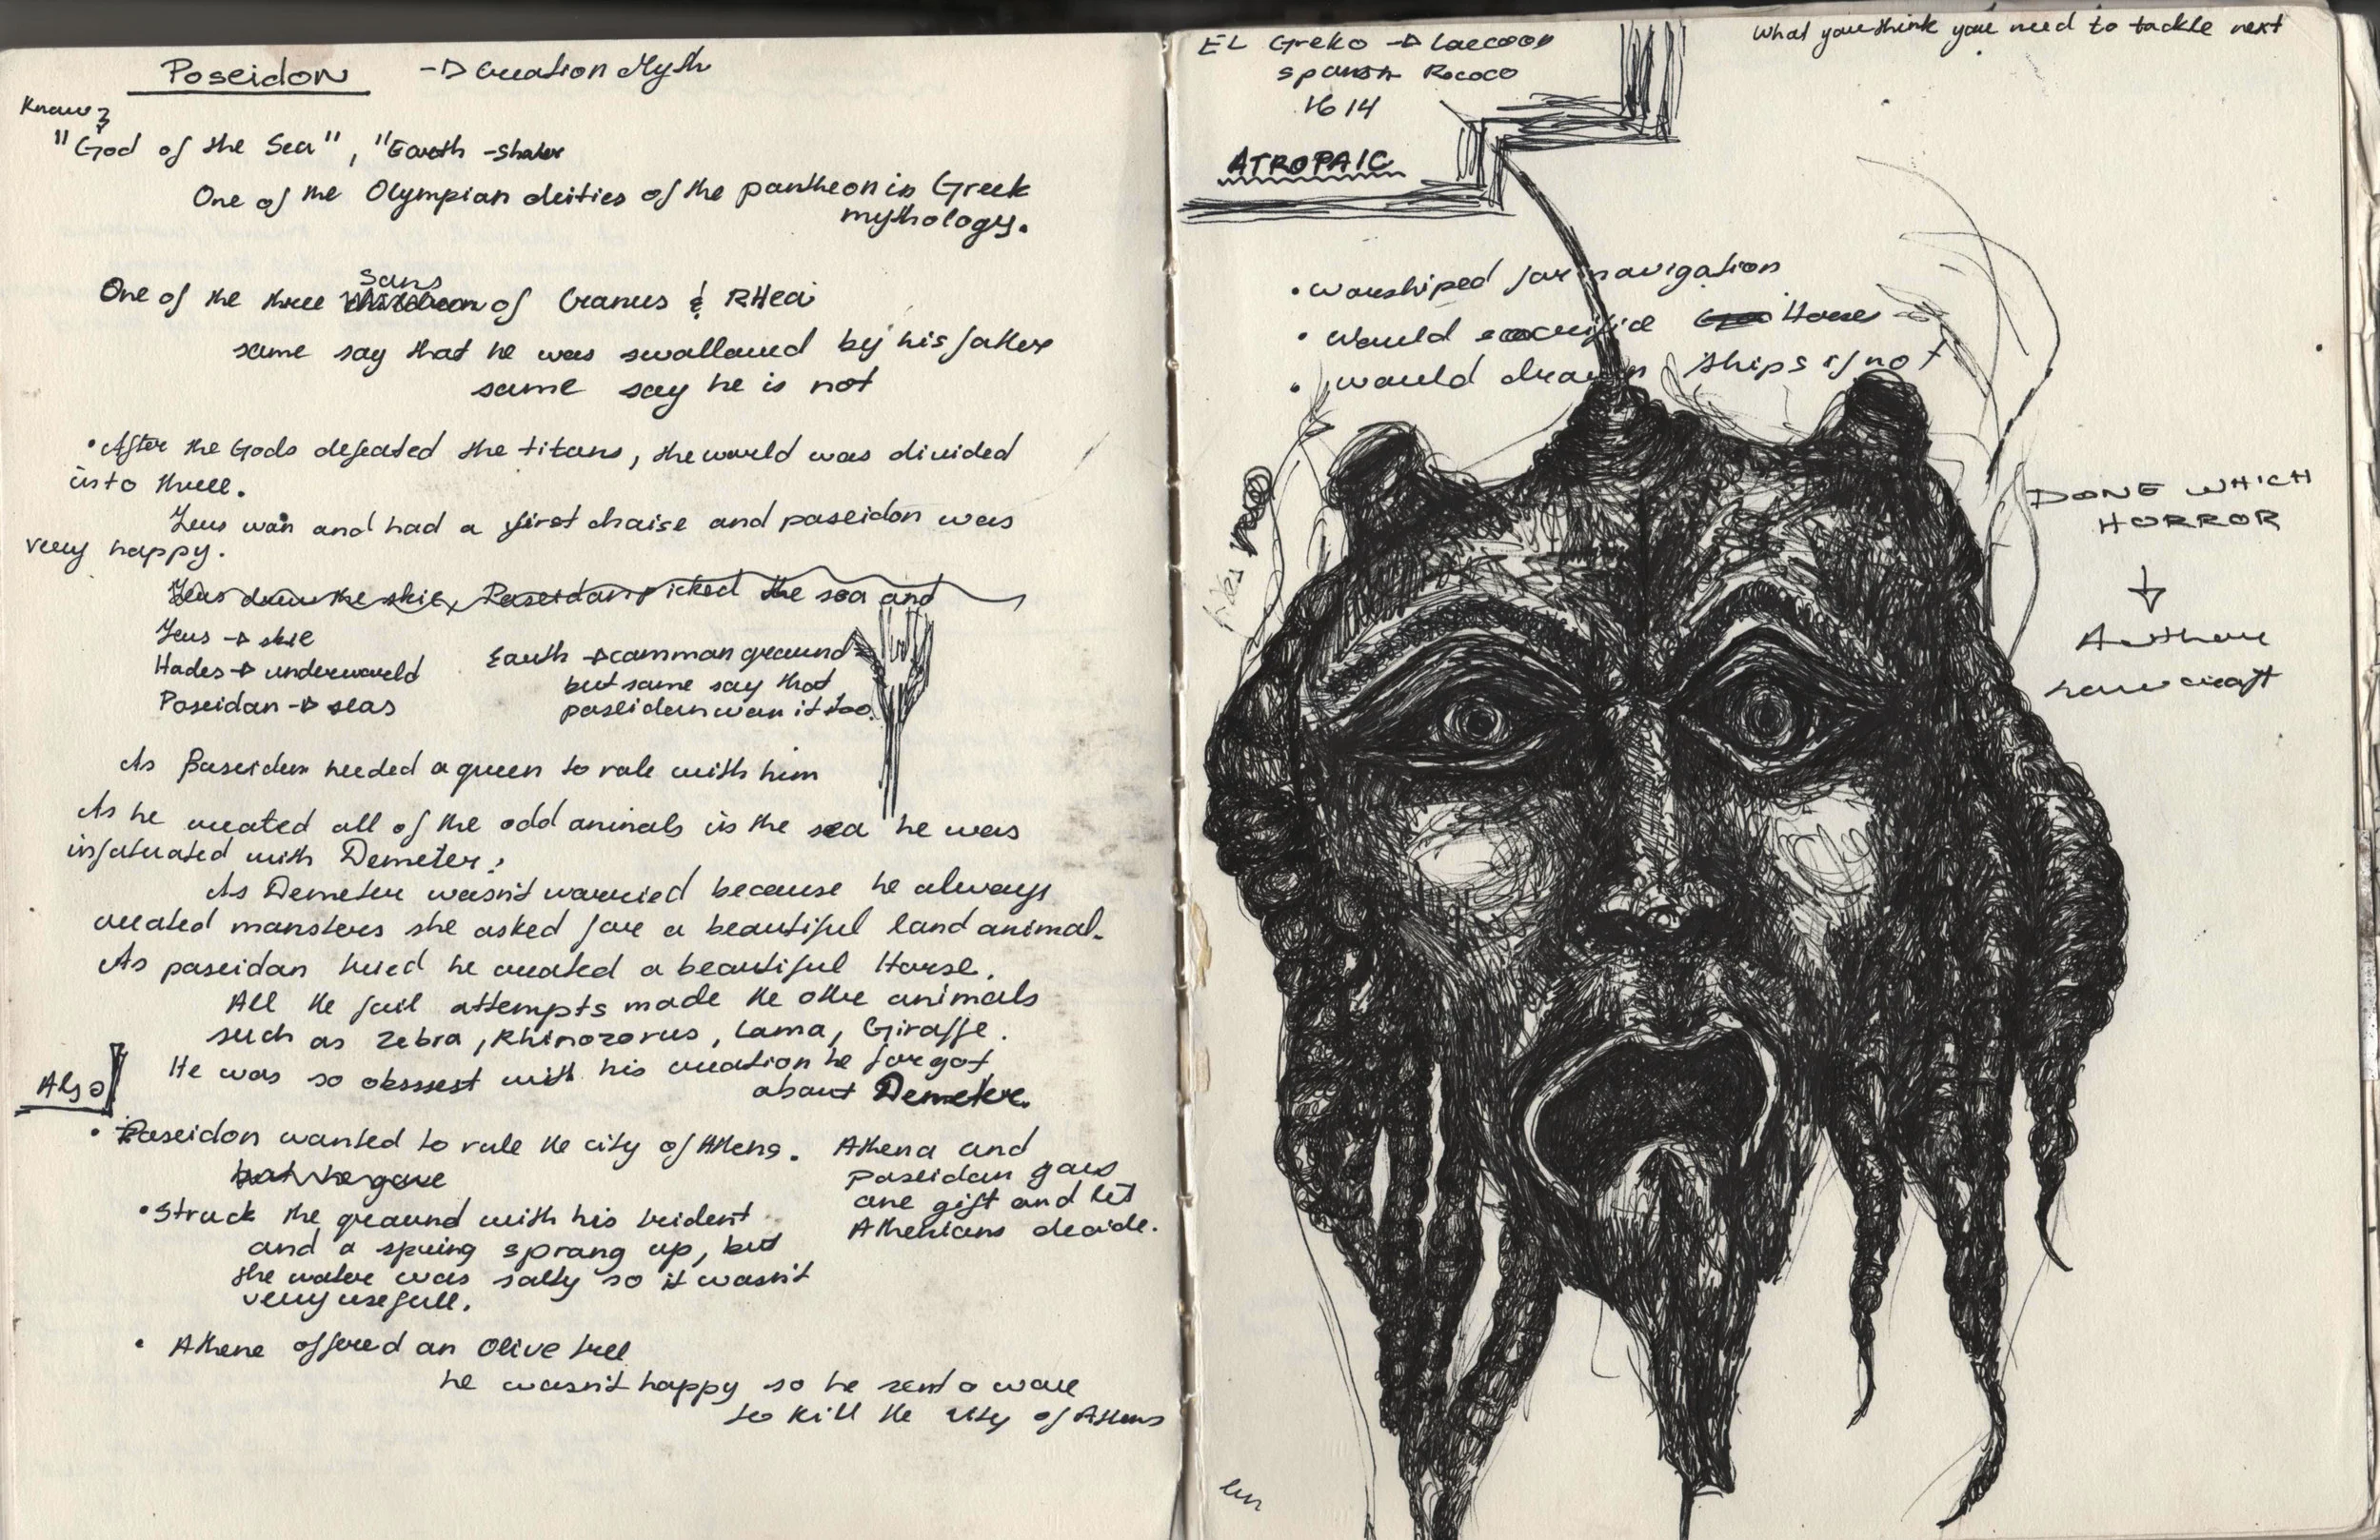 Poseidon -> Creation Myth
Know
"God of the Sea", "Earth-shaker
One of the Olympian deities of the pantheon in Greek
mythology.
sons
One of the three of Uranus & RHea
some say that he was swallowed by his father
some say he is not
• After the Gods defeated the titans, the world was divided
into three.
Zeus won and had a first choise and poseidon was
very happy.
Zeus drew the skie, Poseidon picked the sea and
Zeus -> skie
Hades -> underworld
Poseidon -> seas
Earth -> common ground
but some say that
poseidon won it too.
As Poseidon needed a queen to rule with him
As he created all of the odd animals in the sea he was
infatuated with Demeter;
As Demeter wasn't worried because he always
created monsters she asked for a beautiful land animal.
As poseidon tried he created a beautiful Horse.
All the fail attempts made the othe animals
such as Zebra, Rhinozorus, Lama, Giraffe.
He was so obssest with his creation he forgot
about Demeter.
Also
• Poseidon wanted to rule the city of Athens.
but he gave
Athena and
poseidon gave
one gift and let
Athenians decide.
• Struck the ground with his trident
and a spring sprang up, but
the water was salty so it wasn't
very usefull.
• Athene offered an Olive tree
he wasn't happy so he sent a wave
to kill the city of Athens
EL Greko -> Laecoon
spanish Rococo
1614
What you think you need to tackle next
ATROPAIC
• worshiped for navigation
• would sacrifice Horse
• would drown ships if not
DONE WHICH
HORROR
↓
Author